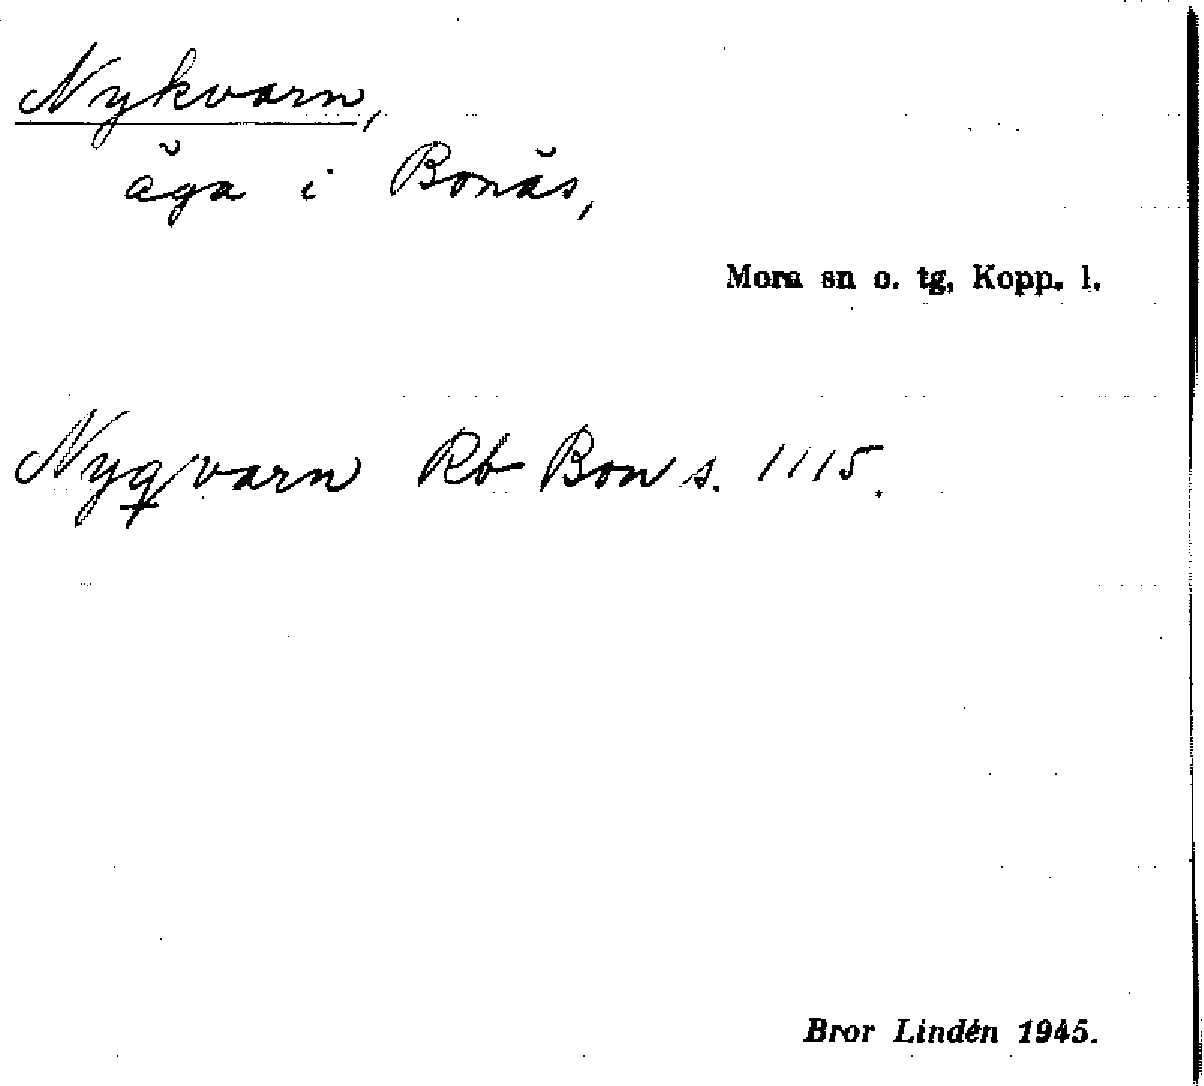 Nykvarn,
äga i Bonäs,
Mora sn o. tg, Kopp. l.
Nyqvarn Rb Bon s. 1115.
Bror Lindén 1945.